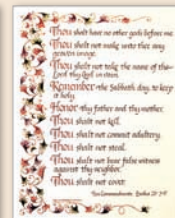 Thou shalt have no other gods before me.
Thou shalt not make unto thee any
graven image.
Thou shalt not take the name of the
Lord thy God in vain.
Remember the Sabbath day, to keep
it holy.
Honor thy father and thy mother.
Thou shalt not kill.
Thou shalt not commit adultery.
Thou shalt not steal.
Thou shalt not bear false witness
against thy neighbor.
Thou shalt not covet.
Ten Commandments, Exodus 20: 3-17